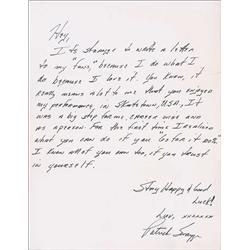 Hey,
It's strange to write a letter
to my "fans," because I do what I
do because I love it. You know, it
really means a lot to me that you enjoyed
my performance, in Skatetown, USA, It
was a big step for me, career wise and
as a person. For the first time I realized
what you can do if you "go for it."
I know all of you can too, if you trust
in yourself.
Stay Happy & Good
Luck!
Luv, xxxxxxx
Patrick Swayze